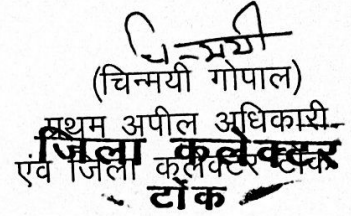 चिन्मयी
(चिन्मयी गोपाल)
प्रथम अपील अधिकारी
एवं जिला कलेक्टर टोंक
जिला कलेक्टर
टोंक